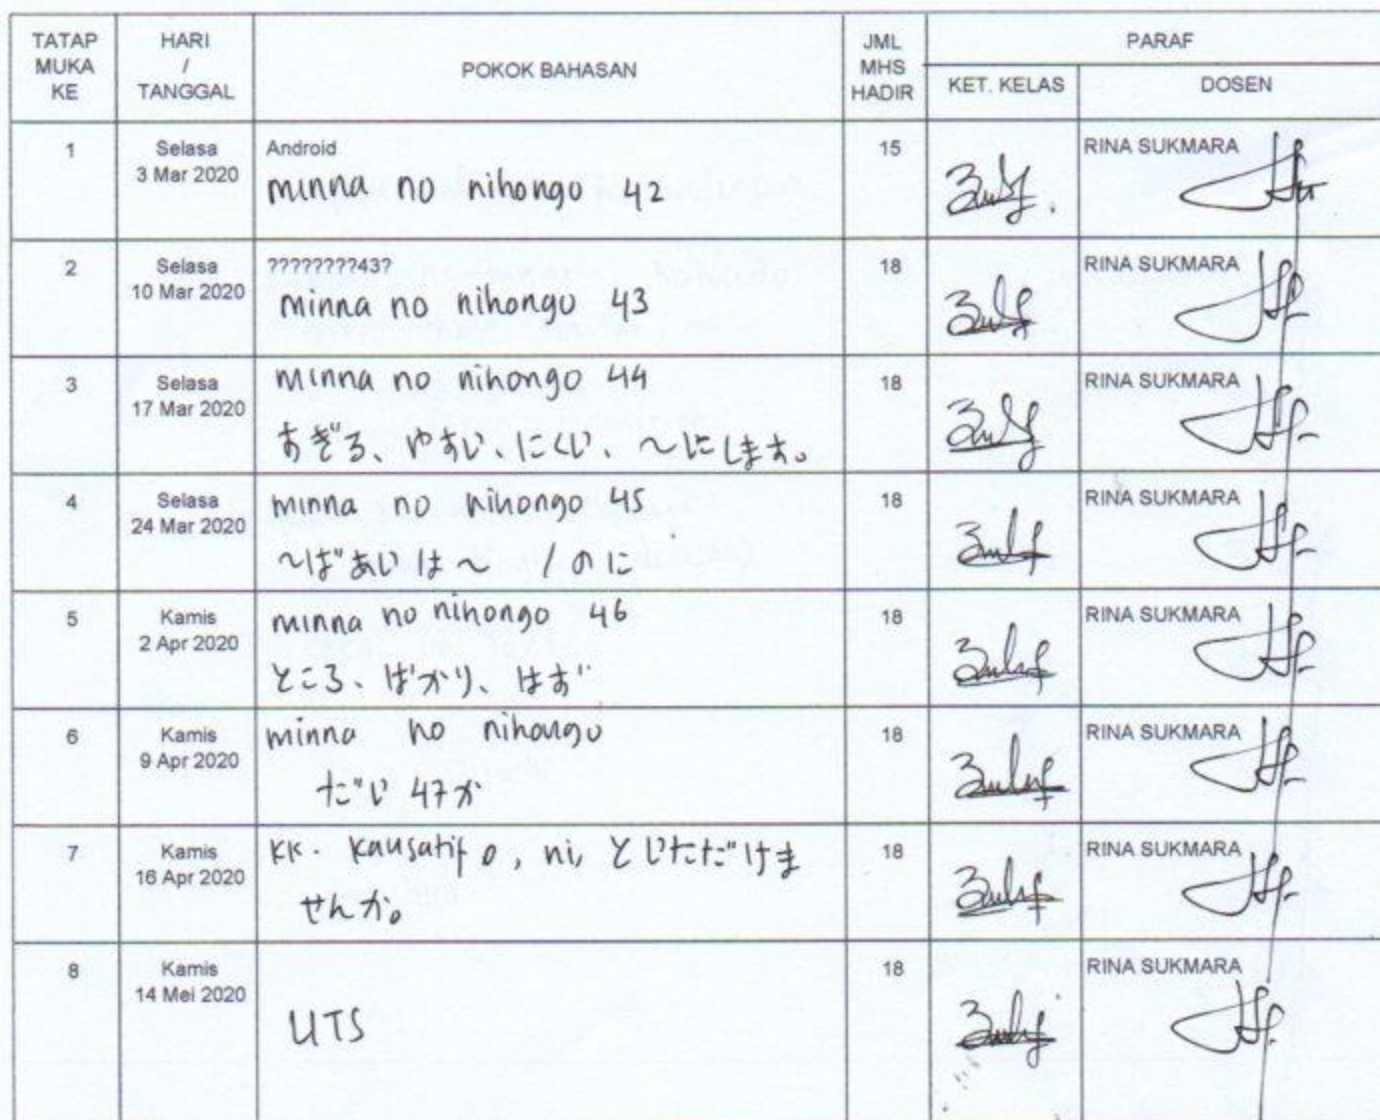 TATAP MUKA KE
HARI / TANGGAL
POKOK BAHASAN
JML MHS HADIR
PARAF
KET. KELAS
DOSEN
1
Selasa
3 Mar 2020
Android
minna no nihongo 42
15
RINA SUKMARA
2
Selasa
10 Mar 2020
????????43?
minna no nihongo 43
18
RINA SUKMARA
3
Selasa
17 Mar 2020
minna no nihongo 44
すぎる、やすい、にくい、〜にします。
18
RINA SUKMARA
4
Selasa
24 Mar 2020
minna no nihongo 45
〜ばあいは〜 / のに
18
RINA SUKMARA
5
Kamis
2 Apr 2020
minna no nihongo 46
ところ、ばかり、はず
18
RINA SUKMARA
6
Kamis
9 Apr 2020
minna no nihongo
だい 47か
18
RINA SUKMARA
7
Kamis
16 Apr 2020
KK. Kausatif o, ni, といただけま
せんか。
18
RINA SUKMARA
8
Kamis
14 Mei 2020
UTS
18
RINA SUKMARA